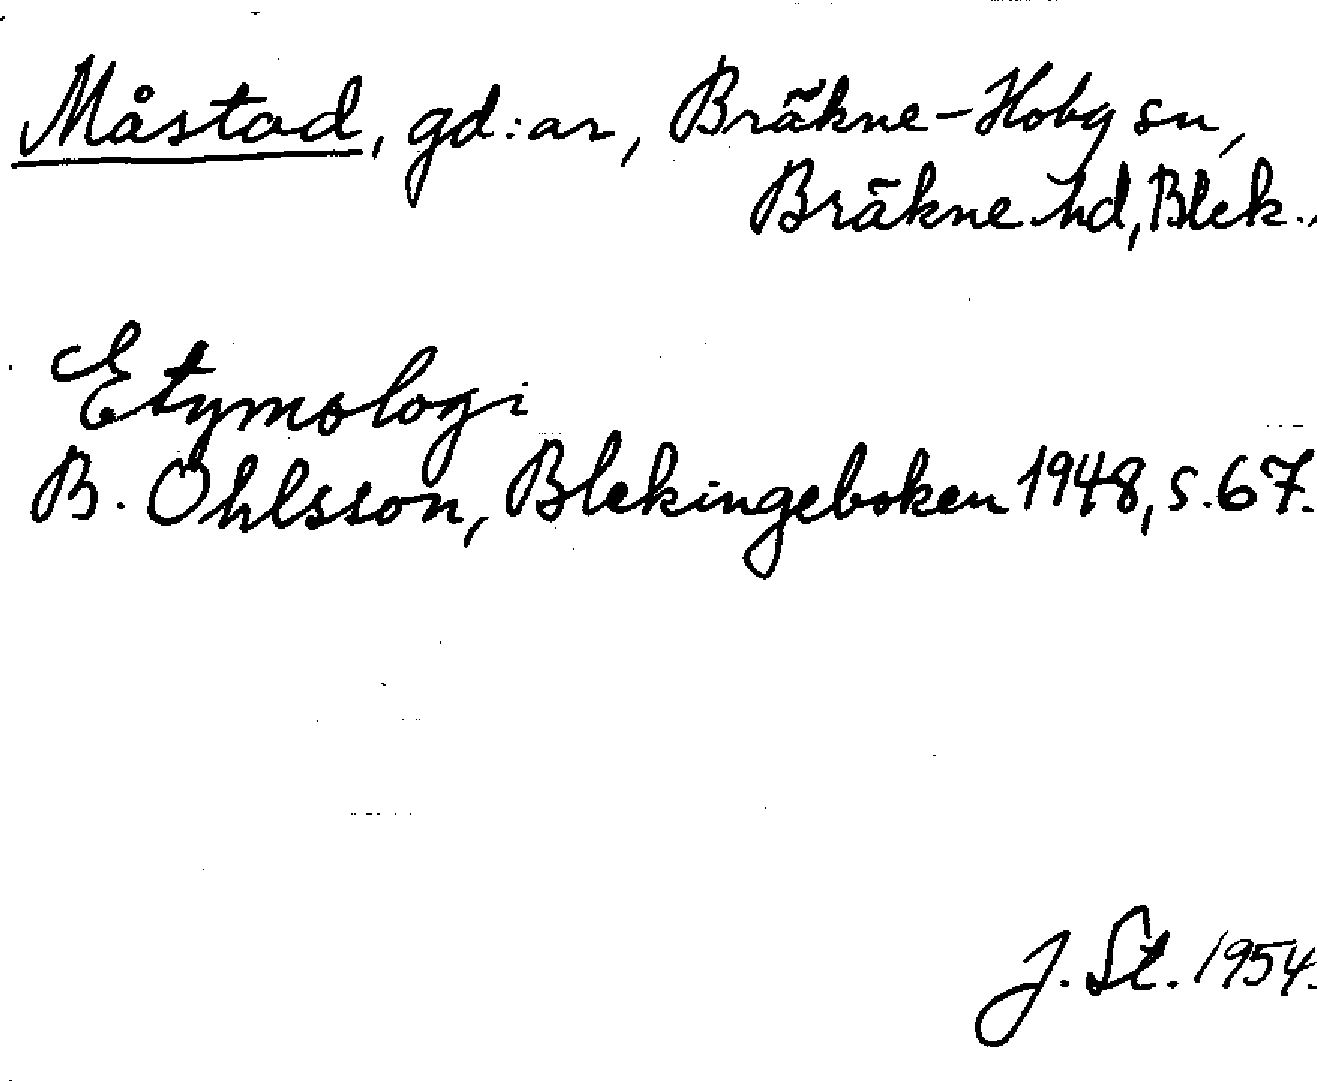 Måstad, gd:ar, Bräkne-Hoby sn,
Bräkne hd, Blek.
Etymologi
B. Ohlsson, Blekingeboken 1948, s. 67.
J. St. 1954.